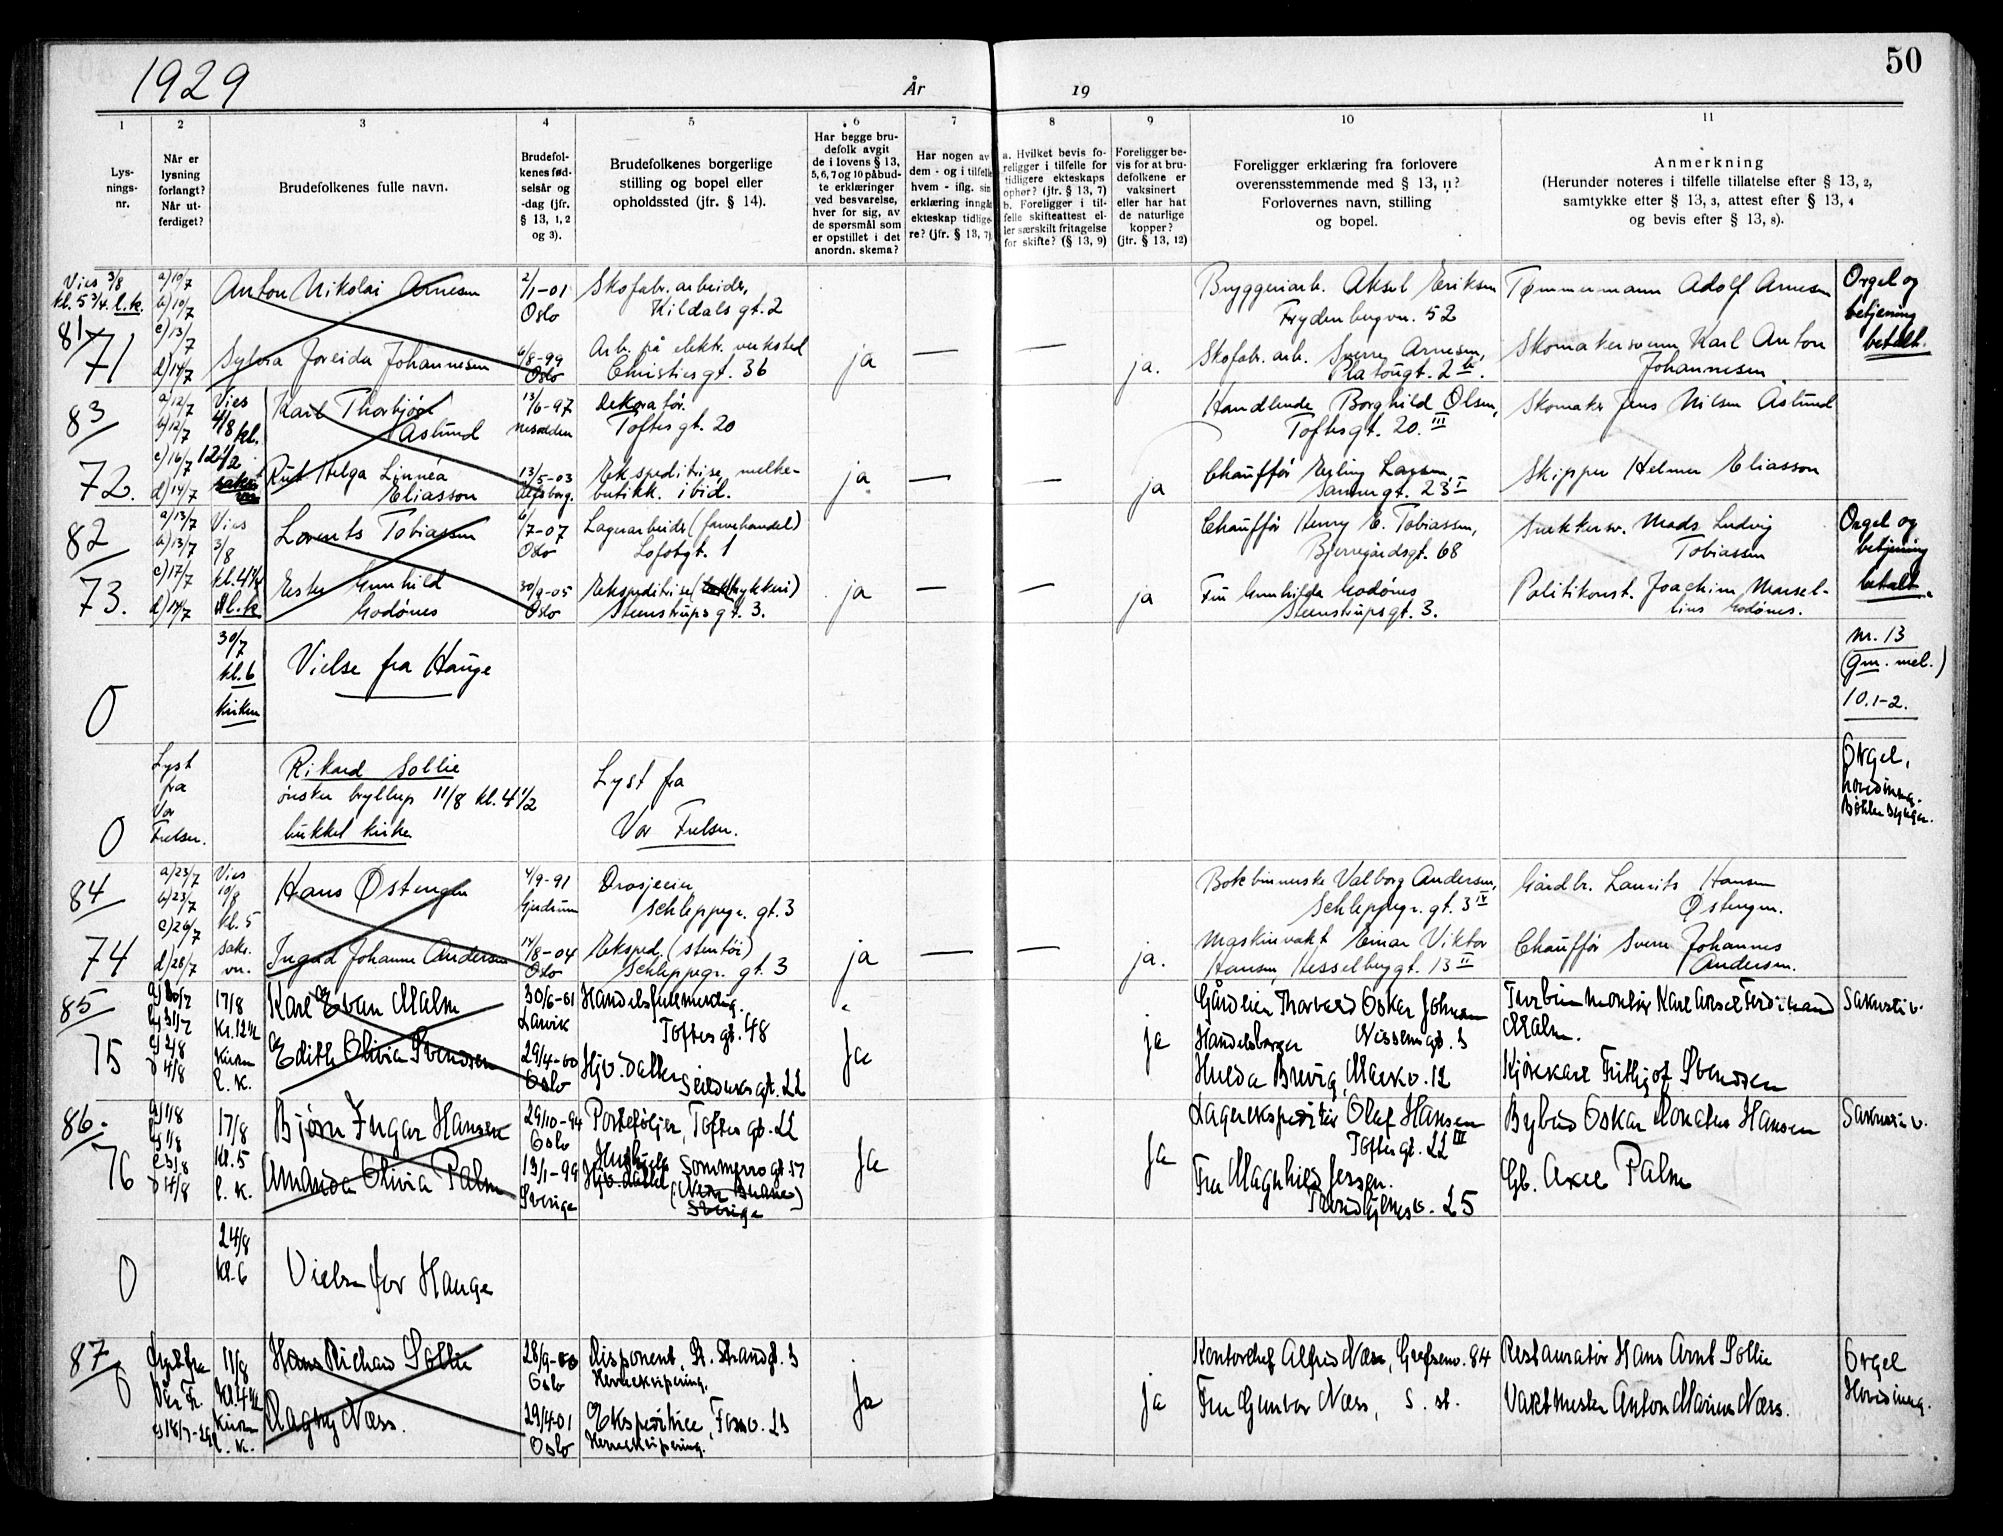 1929
År
19
50
1
2
3
4
5
6
7
8
9
10
11
Lys-
nings-
nr.
Når er
lysning
forlangt?
Når ut-
ferdiget?
Brudefolkenes fulle navn.
Brudefol-
kenes fød-
selsår og
-dag (jfr.
§ 13, 1, 2
og 3).
Brudefolkenes borgerlige
stilling og bopel eller
opholdssted (jfr. § 14).
Har begge bru-
defolk avgit
de i lovens § 13,
5, 6, 7 og 10 påbud-
te erklæringer
ved besvarelse,
hver for sig, av
de spørsmål som
er opstillet i det
anordn. skema?
Har nogen av
dem - og i tilfelle
hvem - iflg. sin
erklæring inngå
ekteskap tidlige-
re? (jfr. § 13, 7)
a. Hvilket bevis fo-
religger i tilfelle for
tidligere ekteskaps
ophør? (jfr. § 13, 7)
b. Foreligger i til-
felle skifteattest el-
ler særskilt fritagelse
for skifte? (§ 13, 9)
Foreligger be-
vis for at bru-
defolkene er
vaksinert
eller har hat
de naturlige
kopper?
(jtr. § 13, 12)
Foreligger erklæring fra forlovere
overensstemmende med § 13, 11?
Forlovernes navn, stilling
og bopel.
Anmerkning
(Herunder noteres i tilfelle tillatelse efter § 13, 2,
samtykke etter § 13, 3, attest efter § 13, 4
og bevis efter § 13, 8).
Vies 3/8
kl. 5 3/4. l.k.
81
71
a) 10/7
b) 10/7
c) 13/7
d) 14/7
Anton Nikolai Arnesen
2/1-01
Oslo
Skofabr. arbeider,
Kildals gt. 2
Bryggeriarb. Aksel Eriksen
Frydenbergvn. 52
Tømmermann Adolf Arnesen
Orgel og
betjening
betalt.
Sylvia Joreida Johannesen
6/8-99
Oslo
Arb. på elektr. verksted
Christiesgt. 36
ja
—
—
ja.
Skofabr. arb. Sverre Arnesen,
Platougt. 2
Skomakersvenn Karl Anton
Johannesen
83
72.
a) 12/7
b) 12/7
c) 16/7
d) 14/7
Vies
4/8 kl.
12 1/2
Karl Thorbjørn
Åslund
13/6-97
Nesodden
Dekoratør.
Toftesgt. 20
Handlende Borghild Olsen,
Toftesgt. 20. III
Skomaker Jens Nilsen Åslund
Rut Helga Linnéa
Eliasson
13/5-03
Elfsborg.
Ekspeditrise, melke-
butikk. ibid.
ja
—
—
ja
Chauffør Erling Larsen,
Sannergt. 23 I
Skipper Helmer Eliasson
82
73.
a) 13/7
b) 13/7
c) 17/7
d) 14/7
Vies
3/8
kl. 4 1/2
l.k.
Lorents Tobiassen
6/7-07
Oslo
Lagerarbeider (farvehandel)
Lofotgt. 1
Chauffør Henry E. Tobiassen,
Bjerregårdsgt. 68
Snekkersv. Mads Ludvig
Tobiassen
Orgel og
betjening
betalt.
Ester Gunhild
Godønes
30/9-05
Oslo
Ekspeditrise (trykkeri)
Steenstrupsgt. 3.
ja
—
—
ja
Fru Gunhilda Godønes
Steenstrupsgt. 3.
Politikonst. Joachim Marsel-
lius Godønes.
0
30/7
kl. 6
kirken
Vielse fra Hauge
nr. 13
(gm. mel.)
10.1-2.
0
Lyst
fra
Vor
Frelser.
Rikard Sollie
ønsker bryllup 11/8 kl. 4 1/2
lukket kirke
Lyst fra
Vor Frelser.
Orgel,
84
74
a) 23/7
b) 23/7
c) 26/7
d) 28/7
Vies
10/8
kl. 5
sakr.
vn.
Hans Østengen
4/9-91
Gjerdrum
Drosjeeier
Schleppegr. gt. 3
Bokbinnerske Valborg Andersen,
Schleppegr. gt. 3 IV
Gårdbr. Laurits Hansen
Østengen.
Ingrid Johanne Andersen
14/8-04
Oslo
Eksped. (stentøi)
Schleppegr. gt. 3
ja
—
—
ja.
Maskinvakt Einar Viktor
Hansen, Hesselberggt. 13 II
Chauffør Sverre Johannes
Andersen.
85
75
a) 30/7
b) 31/7
c) 2/8
d) 4/8
17/8
Kl. 12 1/2
Kirken
l. K.
Karl Evan Malm
30/6-01
Larvik
Handelsfullmektig.
Toftes gt. 48
Gårdeier Thorvald Oskar Johnsen
Turbinmontør Karl Aksel Ferdinand
Malm.
Sakristi v.
Edith Olivia Svendsen
29/4-00
Oslo
Hjv. datter
Seilduksgt. 22
Ja
ja
Handelsborger Nissensgt. 3
Hulda Brevig, Markv. 12
Kjørekarl Frithjof Svendsen
86.
76
a) 1/8
b) 1/8
c) 3/8
d) 4/8
17/8
Kl. 5
l. K.
Bjørn Ingar Hansen
29/10-94
Oslo
Porteføljer, Toftes gt. 22
Lagerekspeditør Olaf Hansen
Toftes gt. 22 III
Bybud Oskar Donatus Hansen
Sakristi v.
Amanda Olivia Palm
13/1-99
Sverige
Hushjelp Sommerro gt. 57
Hjv. datter
Sverige
Ja
Ja
Fru Magnhild Jessen.
Trondhjemsv. 25
Gb. Axel Palm
0
24/8
Kl. 6
Vielse for Hauge
87
0
Lyst fra
Vår Fr.
18/7-29
11/8
Kl. 4 1/2
Kirken
l. K.
Hans Richard Sollie
28/9-00
Oslo
Disponent, St. Strandg. 3
Herreekvipering.
Kontorchef Alfred Næss, Grefsenv. 84
Restauratør Hans Arnt Sollie
Orgel
Ragny Næss.
29/4-01
Oslo
Ekspeditrice, Fossv. 23
Herreekvipering.
Ja
ja
Fru Gunvor Næss, s. st.
Vaktmester Anton Marius Næss.